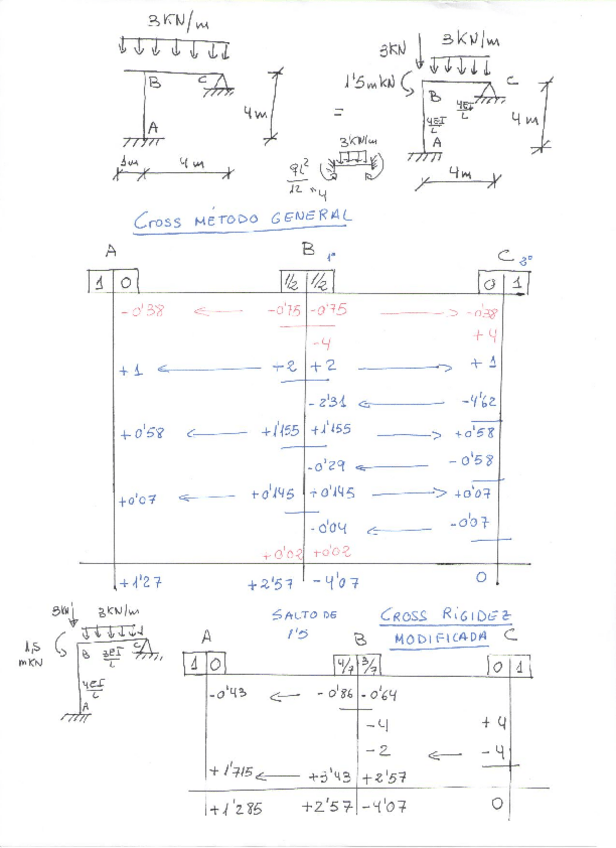 3KN/m
B
C
A
4m
1m
4m
=
3KN
3KN/m
1'5mKN
B
C
4EI/L
4EI/L
A
4m
4m
3KN/m
ql²/12 = 4
CROSS MÉTODO GENERAL
A B 1º C 2º
1 0 1/2 1/2 0 1
-0'38 ← -0'75 -0'75 → -0'38
-4 +4
+1 ← +2 +2 → +1
-2'31 ← -4'62
+0'58 ← +1'155 +1'155 → +0'58
-0'29 ← -0'58
+0'07 ← +0'145 +0'145 → +0'07
-0'04 ← -0'07
+0'02 +0'02
+1'27 +2'57 -4'07 0
SALTO DE
1'5
3KN
3KN/m
1,5
mKN
B
3EI/L
C
4EI/L
A
CROSS RIGIDEZ
MODIFICADA
A B C
1 0 4/7 3/7 0 1
-0'43 ← -0'86 -0'64
-4 +4
-2 ← -4
+1'715 ← +3'43 +2'57
+1'285 +2'57 -4'07 0